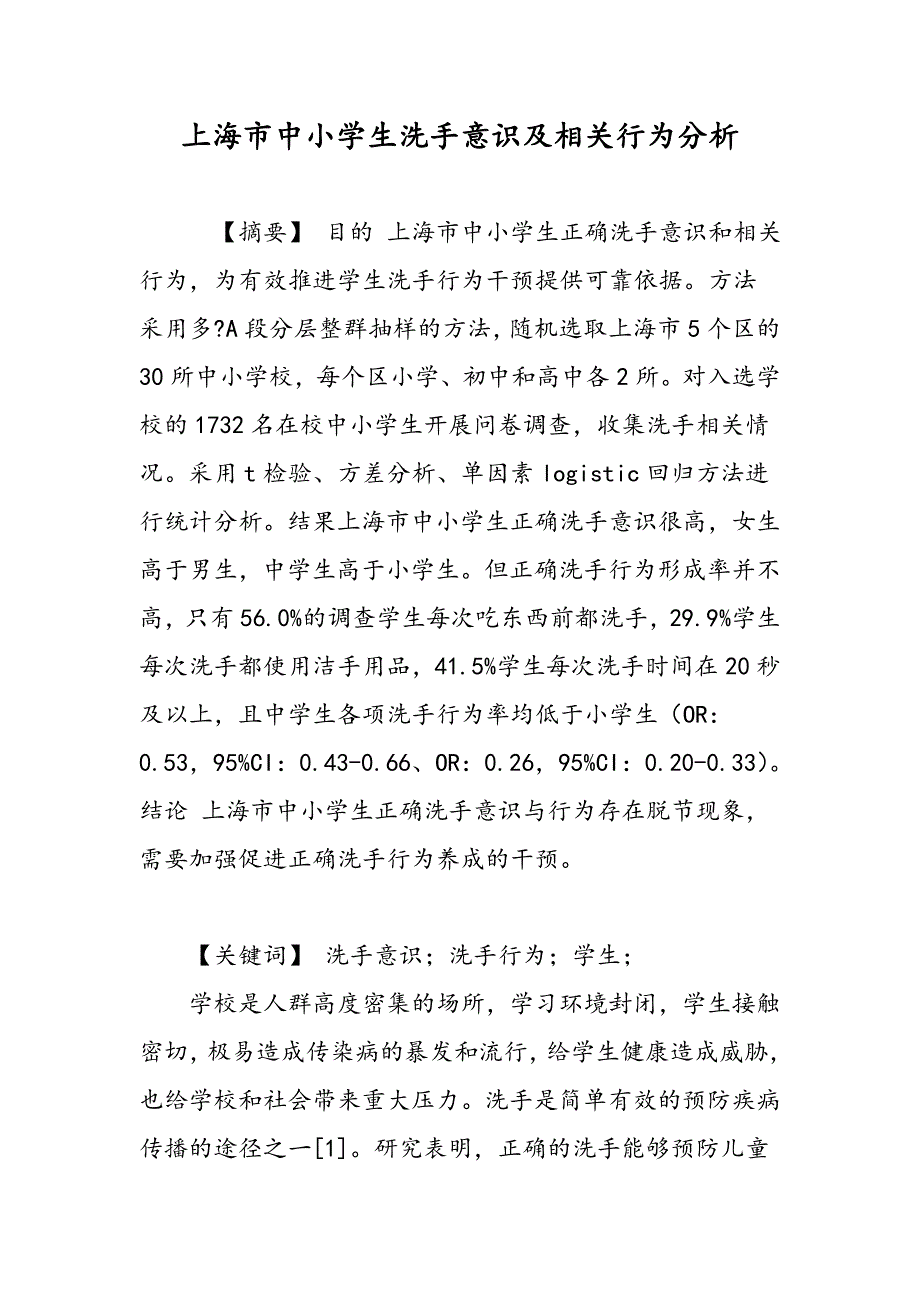 上海市中小学生洗手意识及相关行为分析
【摘要】 目的 上海市中小学生正确洗手意识和相关
行为，为有效推进学生洗手行为干预提供可靠依据。方法
采用多?A 段分层整群抽样的方法，随机选取上海市 5 个区的
30 所中小学校，每个区小学、初中和高中各 2 所。对入选学
校的 1732 名在校中小学生开展问卷调查，收集洗手相关情
况。采用 t 检验、方差分析、单因素 logistic 回归方法进
行统计分析。结果上海市中小学生正确洗手意识很高，女生
高于男生，中学生高于小学生。但正确洗手行为形成率并不
高，只有 56.0%的调查学生每次吃东西前都洗手，29.9%学生
每次洗手都使用洁手用品，41.5%学生每次洗手时间在 20 秒
及以上，且中学生各项洗手行为率均低于小学生（OR：
0.53，95%CI：0.43-0.66、OR：0.26，95%CI：0.20-0.33）。
结论 上海市中小学生正确洗手意识与行为存在脱节现象，
需要加强促进正确洗手行为养成的干预。
【关键词】 洗手意识；洗手行为；学生；
学校是人群高度密集的场所，学习环境封闭，学生接触
密切，极易造成传染病的暴发和流行，给学生健康造成威胁，
也给学校和社会带来重大压力。洗手是简单有效的预防疾病
传播的途径之一[1]。研究表明，正确的洗手能够预防儿童